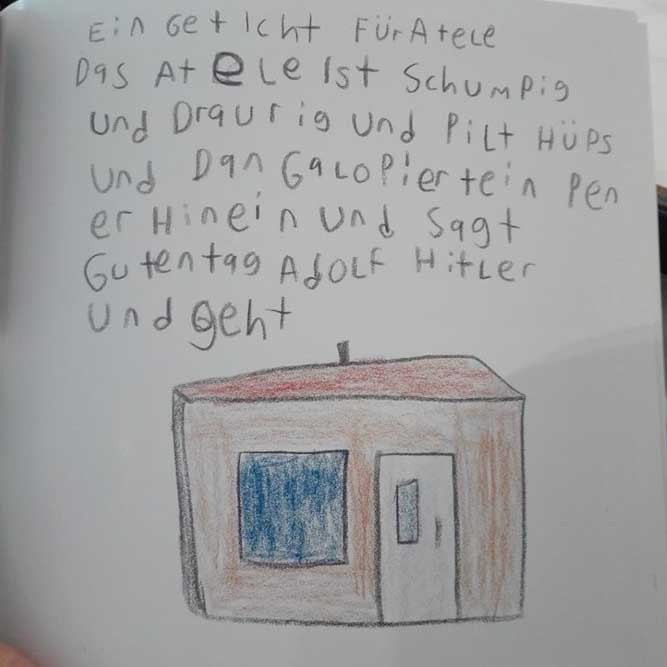 Ein Geticht FürAtele
Das Atele ist Schumpig
und Draurig und Pilt HÜPs
und Dan GaloPiertein Pen
er Hinein und Sagt
Gutentag Adolf Hitler
und geht